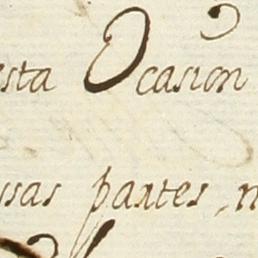 esta Ocasion
ssas partes, n